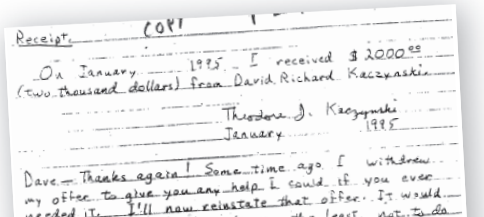 COPY
Receipt.
On January 1995 I received $2000.00
(two thousand dollars) from David Richard Kaczynski.
Theodore J. Kaczynski
January 1995
Dave — Thanks again! Some time ago I withdrew
my offer to give you any help I could if you ever
needed it. I'll now reinstate that offer. It would
the least not to do